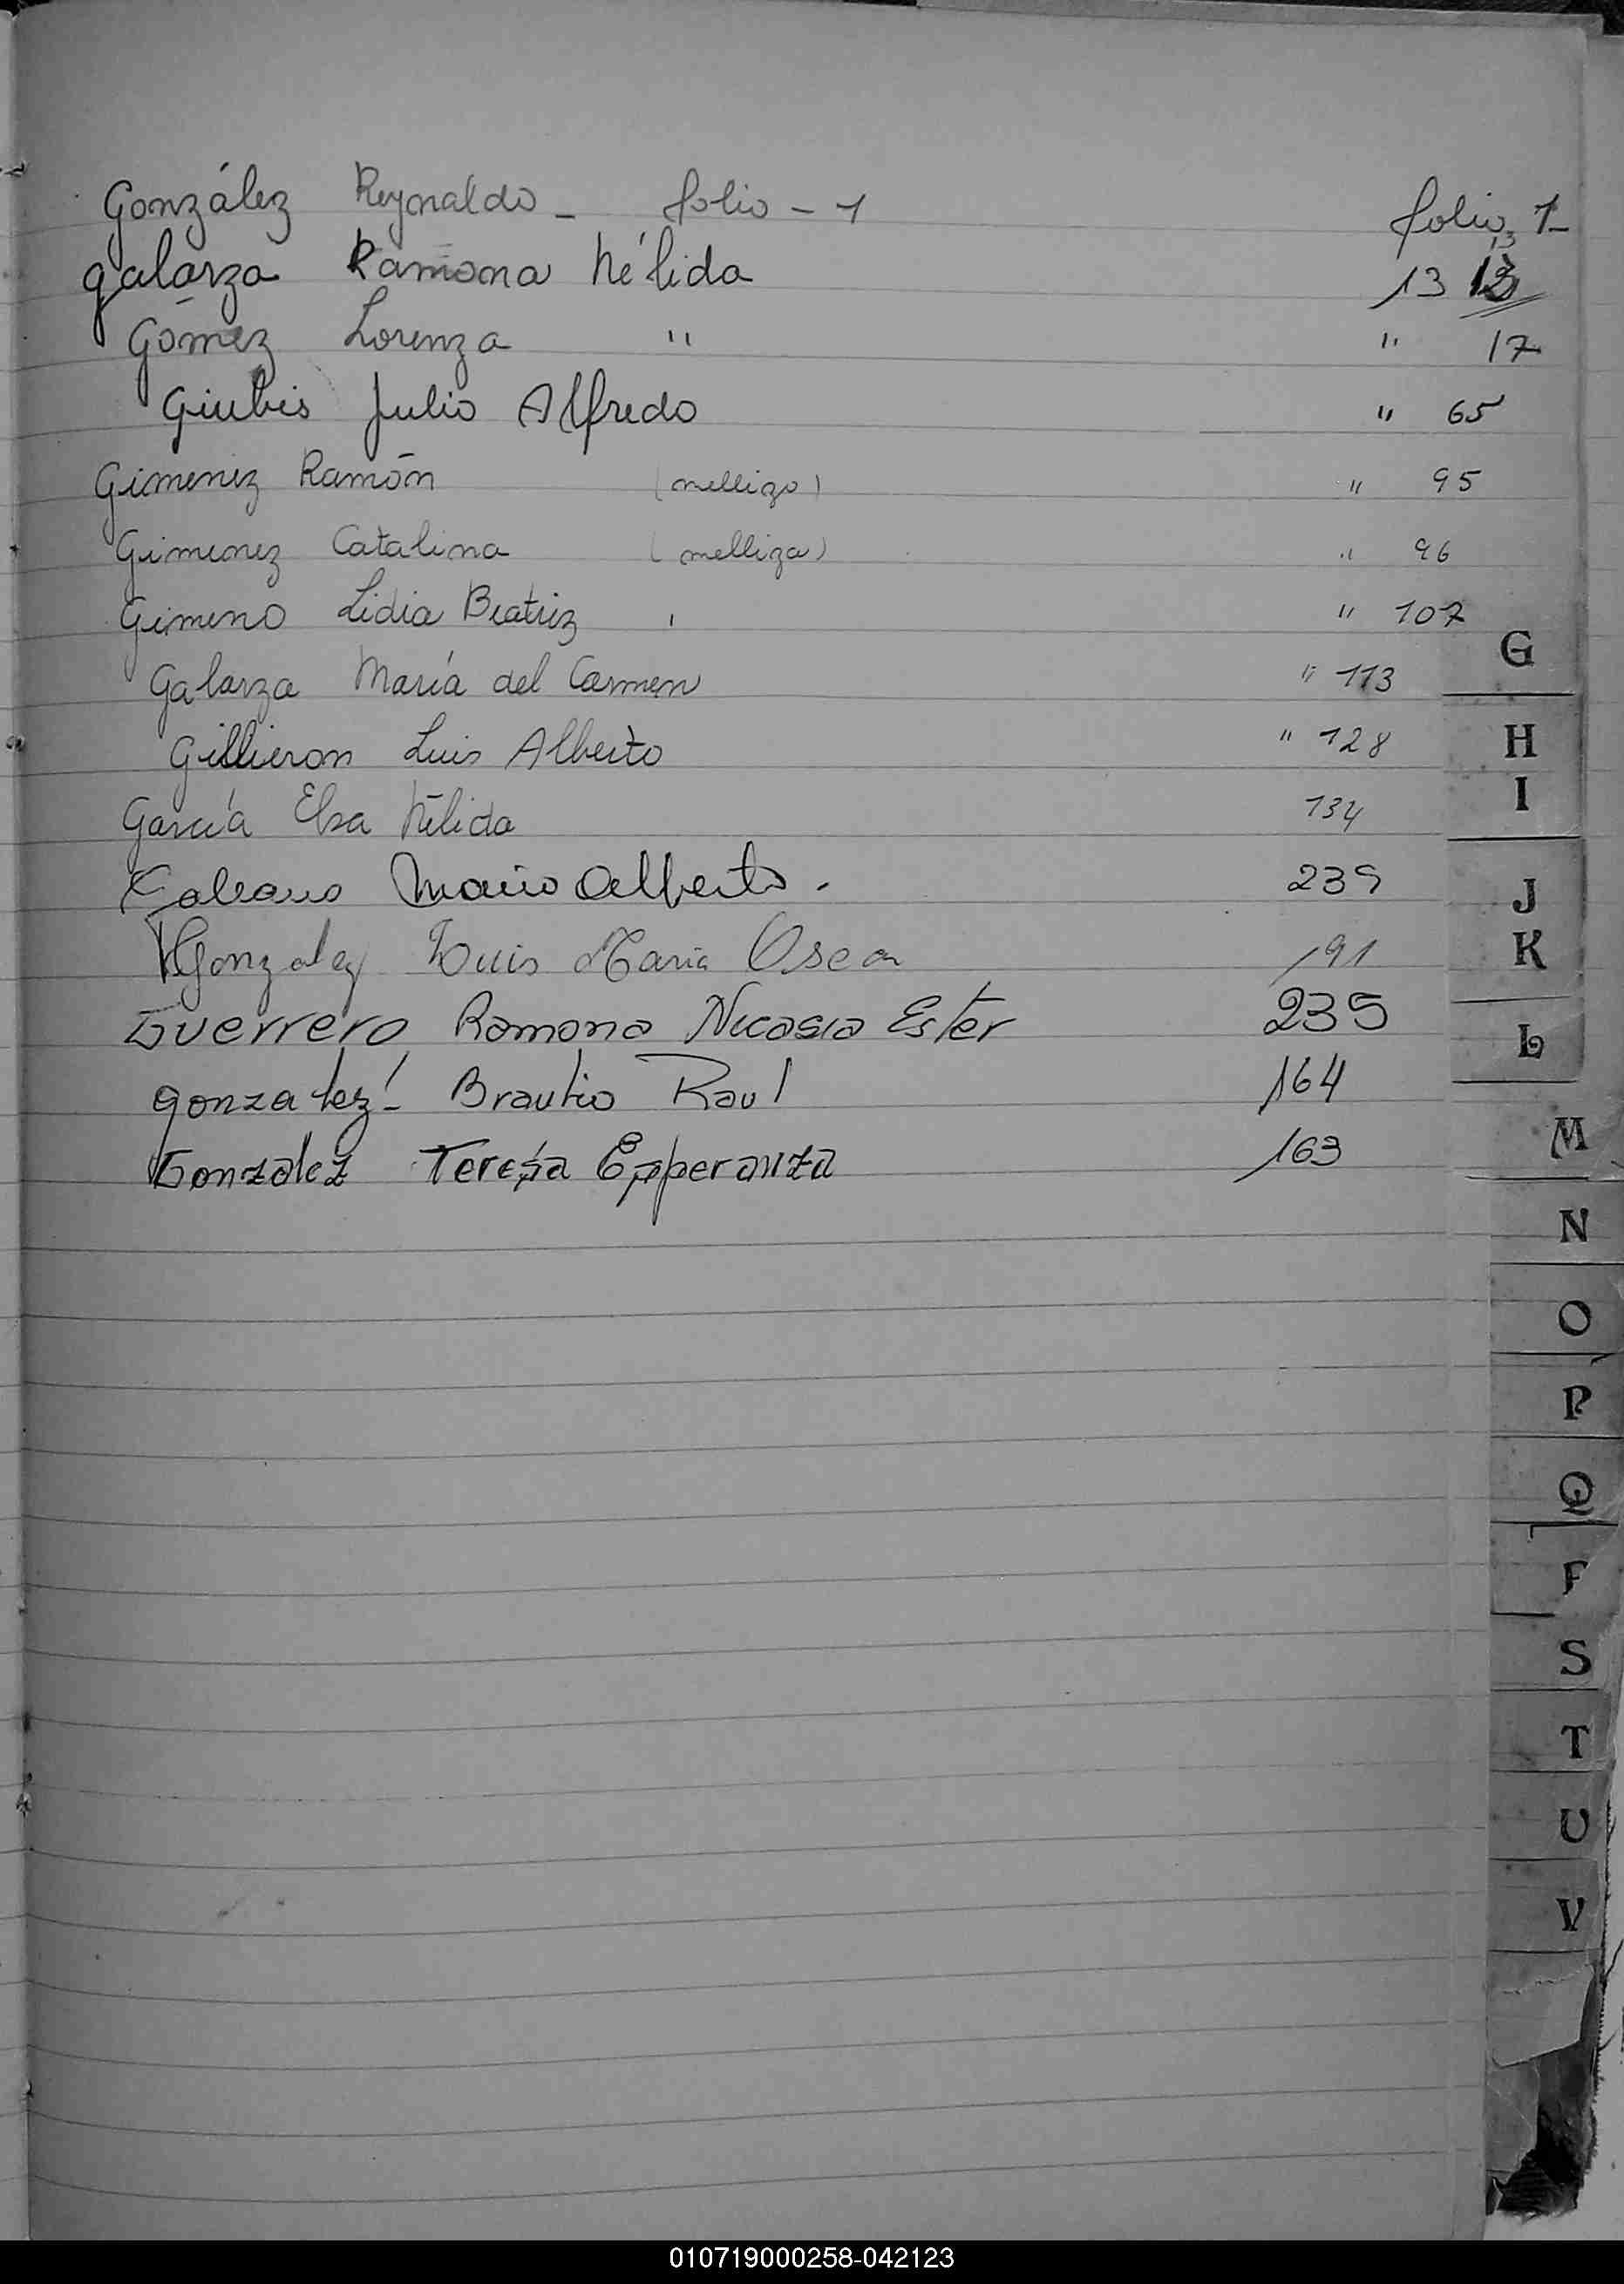 González Reynaldo - folio - 1 folio, 1-
Galarza Ramona Nélida 13 13
Gómez Lorenza " " 17
Giubis Julio Alfredo " 65
Gimenez Ramón (mellizo) " 95
Gimenez Catalina (melliza) " 96
Gimeno Lidia Beatriz " 107
Galarza María del Carmen " 113
Gillieron Luis Alberto " 128
García Elsa Nélida 134
Mario Alberto. 239
Gonzalez Luis Maria Oscar 191
Guerrero Ramona Nicasia Ester 235
Gonzalez - Braulio Raul 164
Gonzalez Teresa Esperanza 163
G
H
I
J
K
L
M
N
O
P
Q
S
T
U
V
010719000258-042123